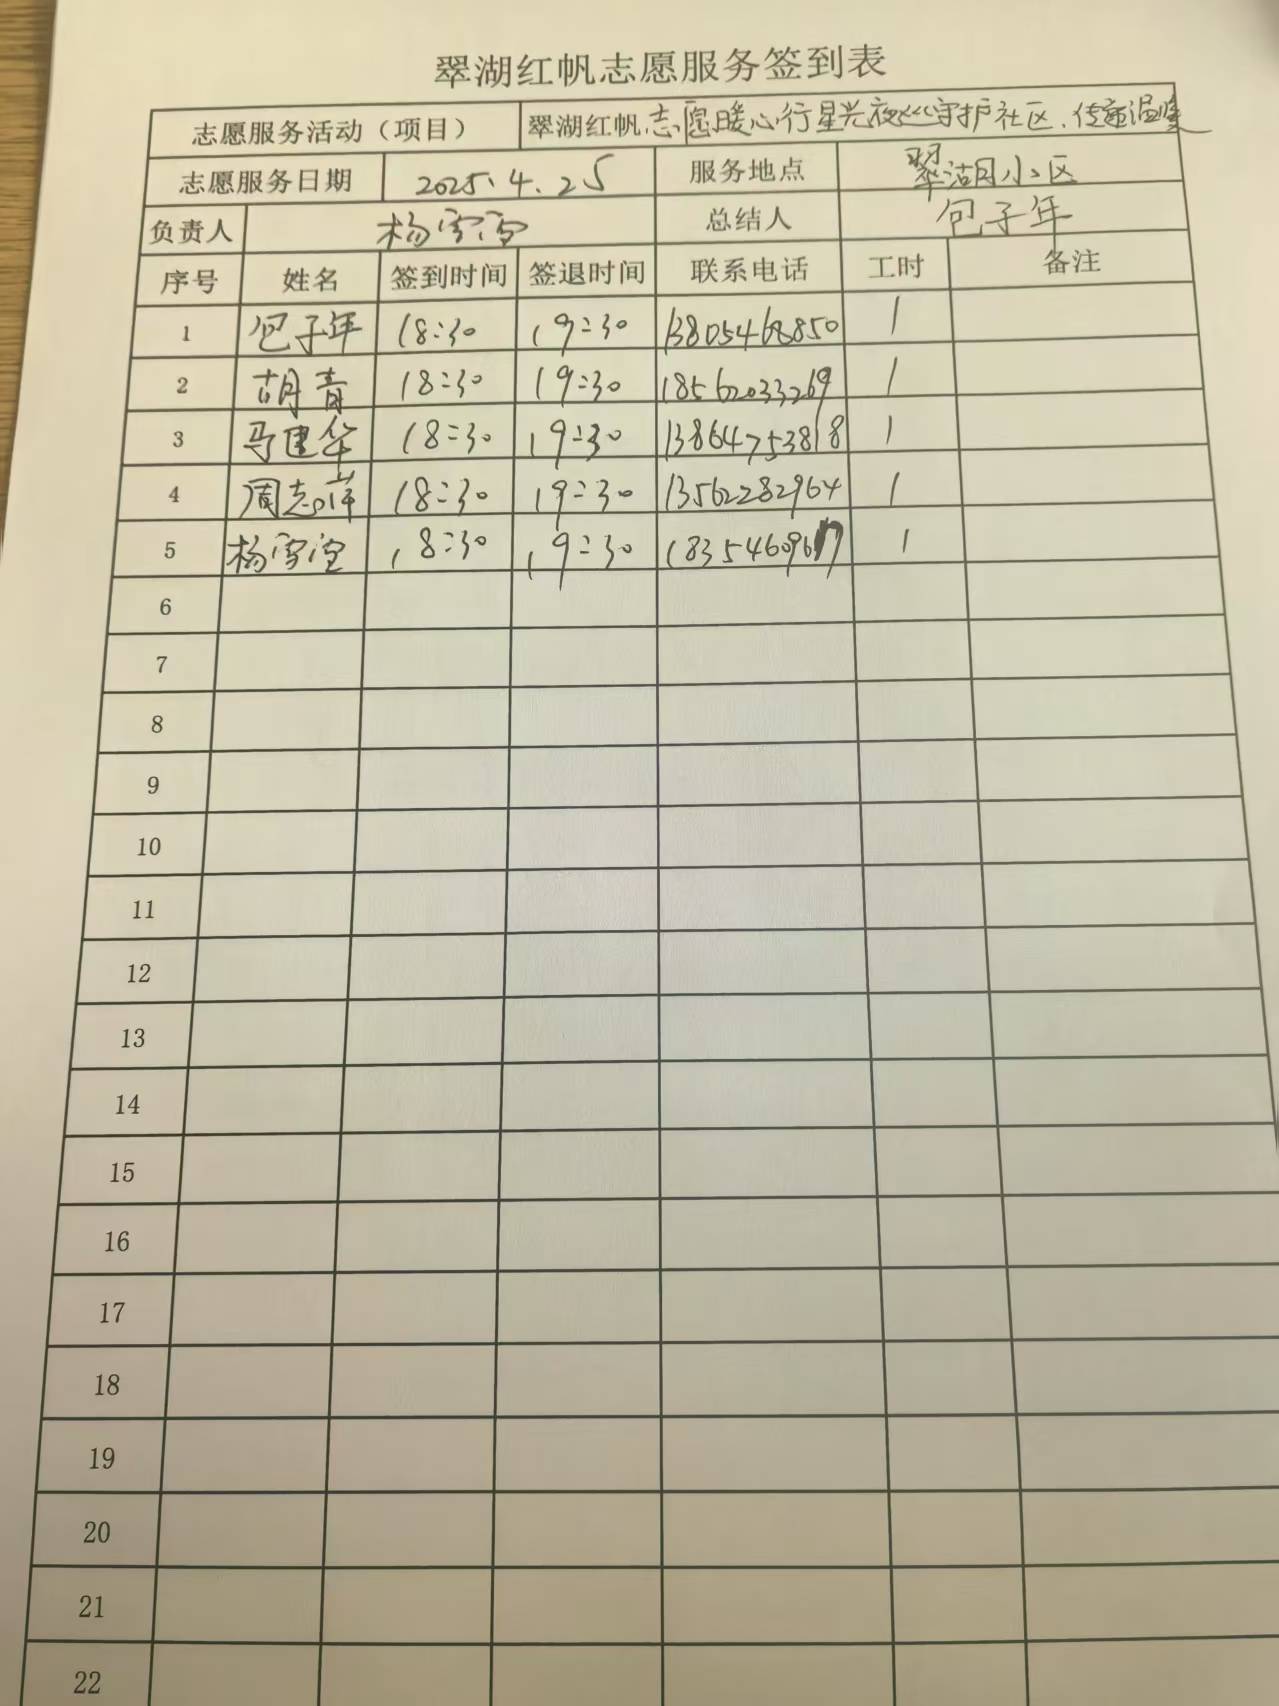 翠湖红帆志愿服务签到表
志愿服务活动（项目） 翠湖红帆志愿暖心行星光夜巡守护社区、传递温暖
志愿服务日期 2025.4.25 服务地点 翠湖小区
负责人 杨雪 总结人 包子年
序号 姓名 签到时间 签退时间 联系电话 工时 备注
1 包子年 18:30 19:30 13805468850 1
2 胡青 18:30 19:30 18562033269 1
3 马建华 18:30 19:30 13864753818 1
4 周志萍 18:30 19:30 13562282964 1
5 杨雪 18:30 19:30 1
6
7
8
9
10
11
12
13
14
15
16
17
18
19
20
21
22